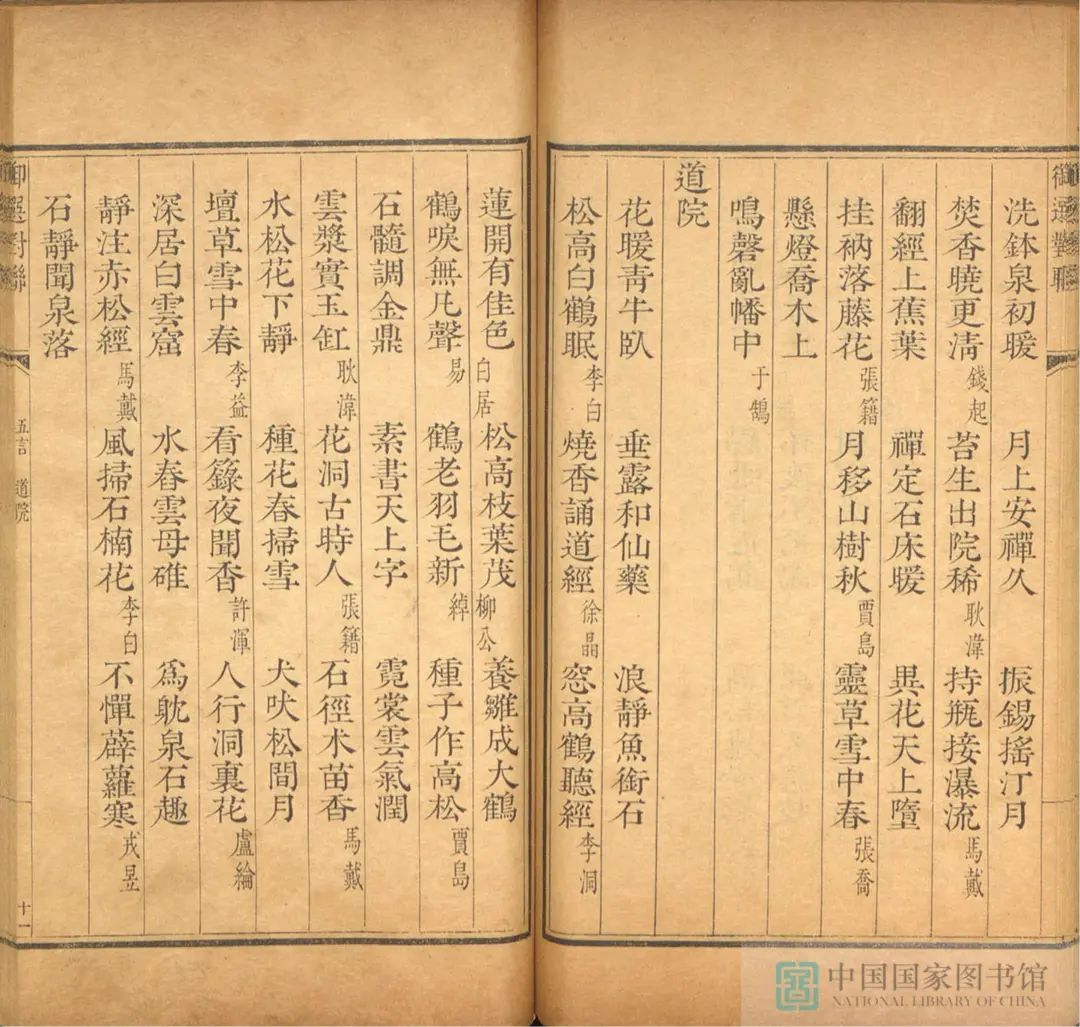 御選對聯
洗鉢泉初暖 月上安禪久 振錫搖汀月
焚香曉更淸 錢起 苔生出院稀 耿湋 持瓶接瀑流 馬戴
翻經上蕉葉 禪定石床暖 異花天上墮
挂衲落藤花 張籍 月移山樹秋 賈島 靈草雪中春 張喬
懸燈喬木上
鳴磬亂幡中 于鵠
道院
花暖靑牛臥 垂露和仙藥 浪靜魚銜石
松高白鶴眠 李白 燒香誦道經 徐晶 窓高鶴聽經 李洞
蓮開有佳色 松高枝葉茂 養雛成大鶴
鶴唳無凡聲 白居易 鶴老羽毛新 柳公綽 種子作高松 賈島
石髓調金鼎 素書天上字 霓裳雲氣潤
雲漿實玉缸 耿湋 花洞古時人 張籍 石徑朮苗香 馬戴
水松花下靜 種花春掃雪 犬吠松間月
壇草雪中春 李益 看籙夜聞香 許渾 人行洞裏花 盧綸
深居白雲窟 水舂雲母碓 爲躭泉石趣
靜注赤松經 馬戴 風掃石楠花 李白 不憚薜蘿寒 戎昱
石靜聞泉落
御選對聯 五言 道院 十一
中国国家图书馆
NATIONAL LIBRARY OF CHINA